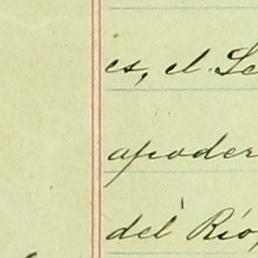 es, el Se
apoder
del Río,